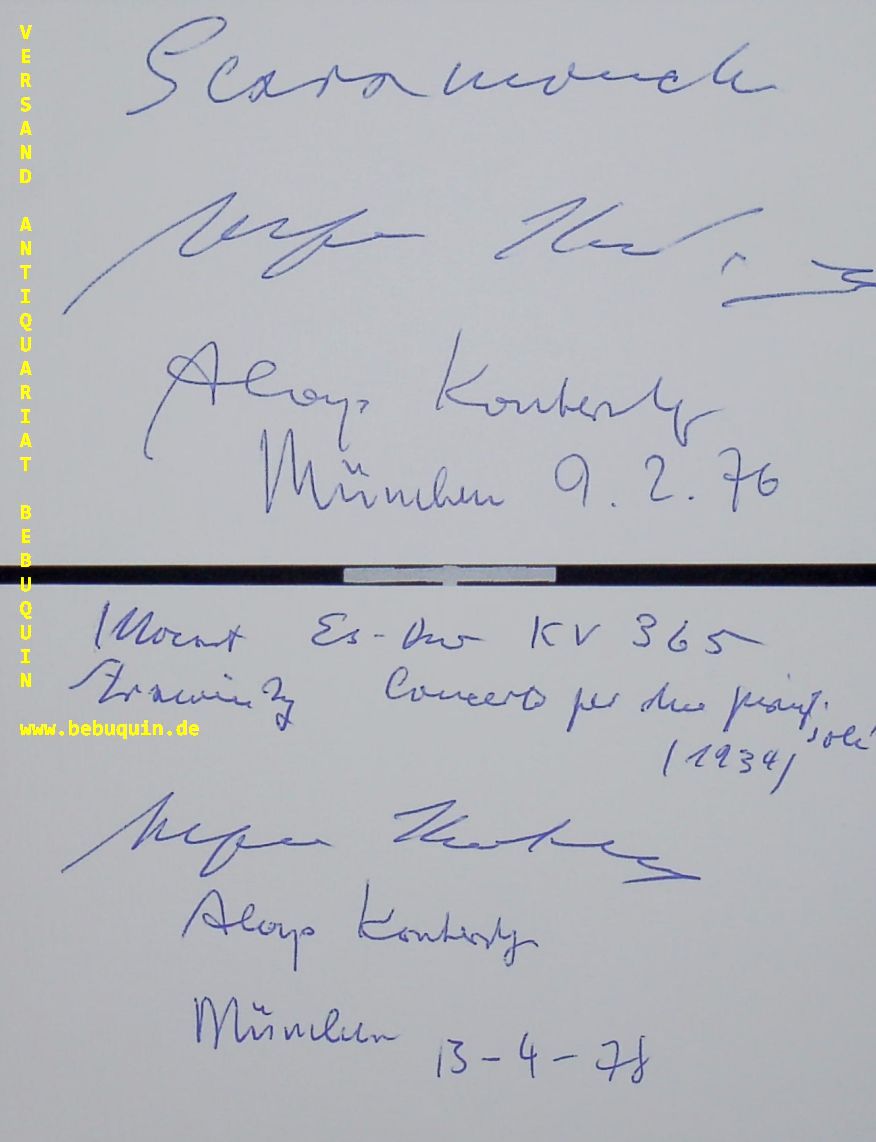 Scaramouche
Alfons Kontarsky
Aloys Kontarsky
München 9.2.76
Mozart Es-Dur KV 365
Strawinsky Concerto per due pianof.
soli
(1934)
Alfons Kontarsky
Aloys Kontarsky
München 13-4-78
VERSAND ANTIQUARIAT BEBUQUIN
www.bebuquin.de